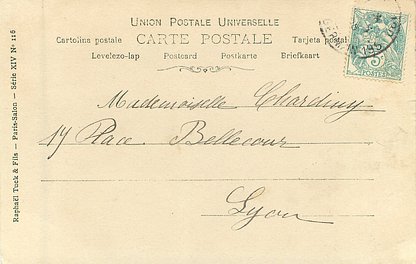 UNION POSTALE UNIVERSELLE
Cartolina postale CARTE POSTALE Tarjeta postal
Levelezo-lap Postcard Postkarte Briefkaart
Mademoiselle Chardiny
17 Place Bellecour
Lyon
Raphaël Tuck & Fils — Paris-Salon — Série XIV Nº 116
5
POSTES